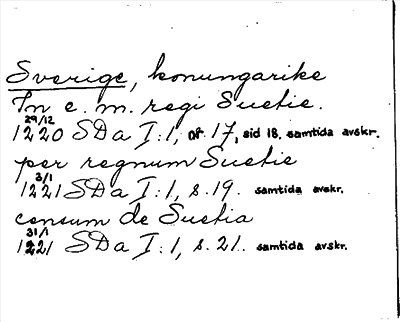 Sverige, konungarike
In e. m. regi Suetie.
29/12
1220 SDa I:1, nr. 17, sid 18. samtida avskr.
per regnum Suetie
3/1
1221 SDa I:1, s. 19. samtida avskr.
censum de Suetia
31/1
1221 SDa I:1, s. 21. samtida avskr.